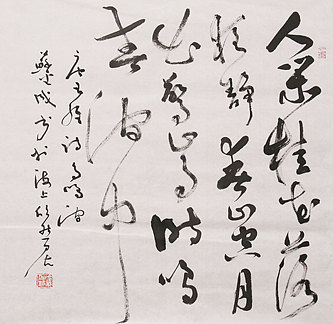 人閑桂花落
夜靜春山空月
出驚山鳥時鳴
春澗中
唐王維詩鳥鳴澗
於海上